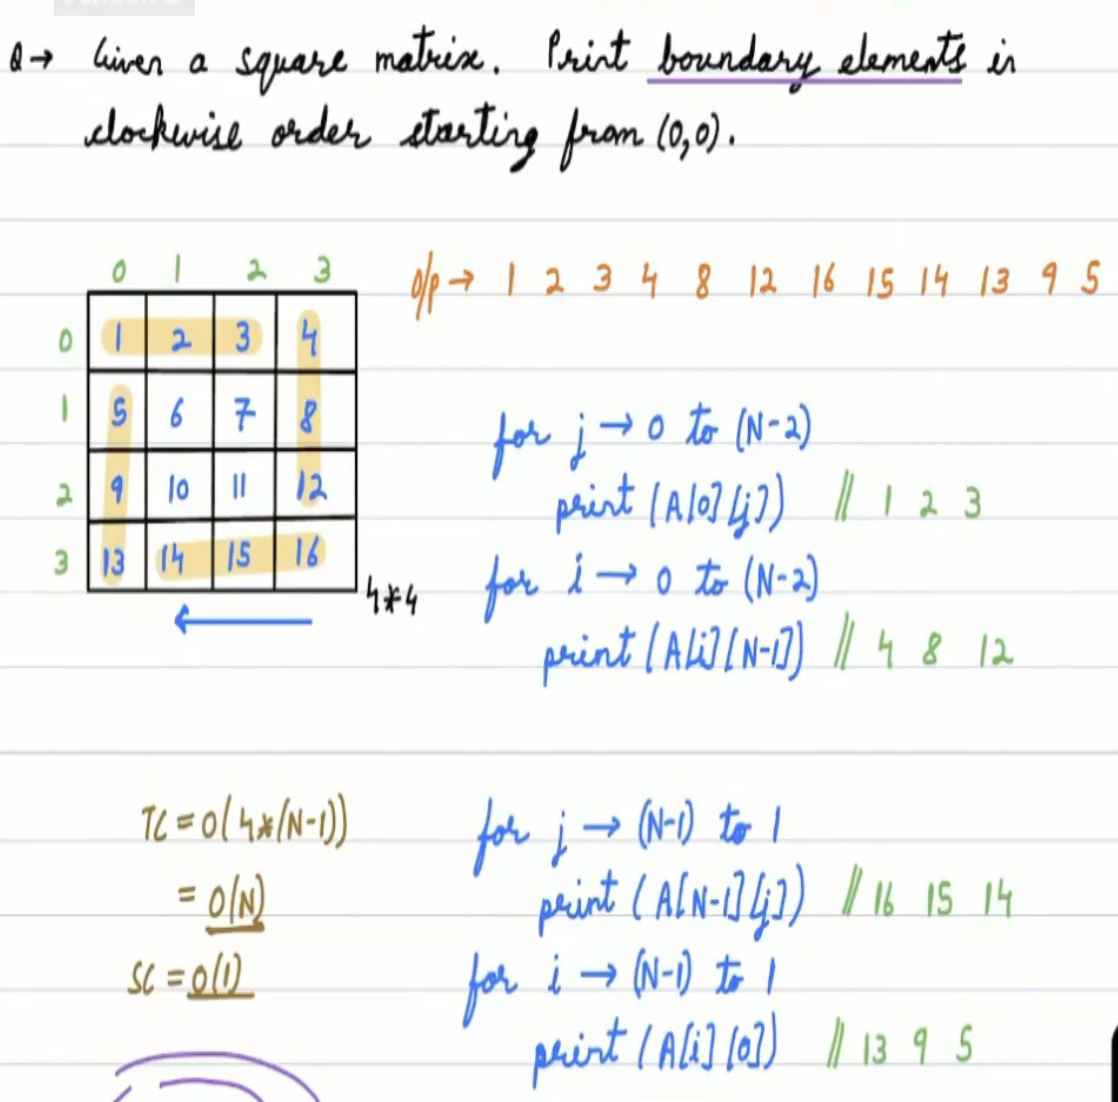 Q→ Given a square matrix. Print boundary elements in
clockwise order starting from (0,0).
0 1 2 3
O/p → 1 2 3 4 8 12 16 15 14 13 9 5
0 1 2 3 4
1 5 6 7 8
2 9 10 11 12
3 13 14 15 16
4*4
for j → 0 to (N-2)
print (A[0][j]) // 1 2 3
for i → 0 to (N-2)
print (A[i][N-1]) // 4 8 12
TC = O(4*(N-1))
= O(N)
SC = O(1)
for j → (N-1) to 1
print (A[N-1][j]) // 16 15 14
for i → (N-1) to 1
print (A[i][0]) // 13 9 5